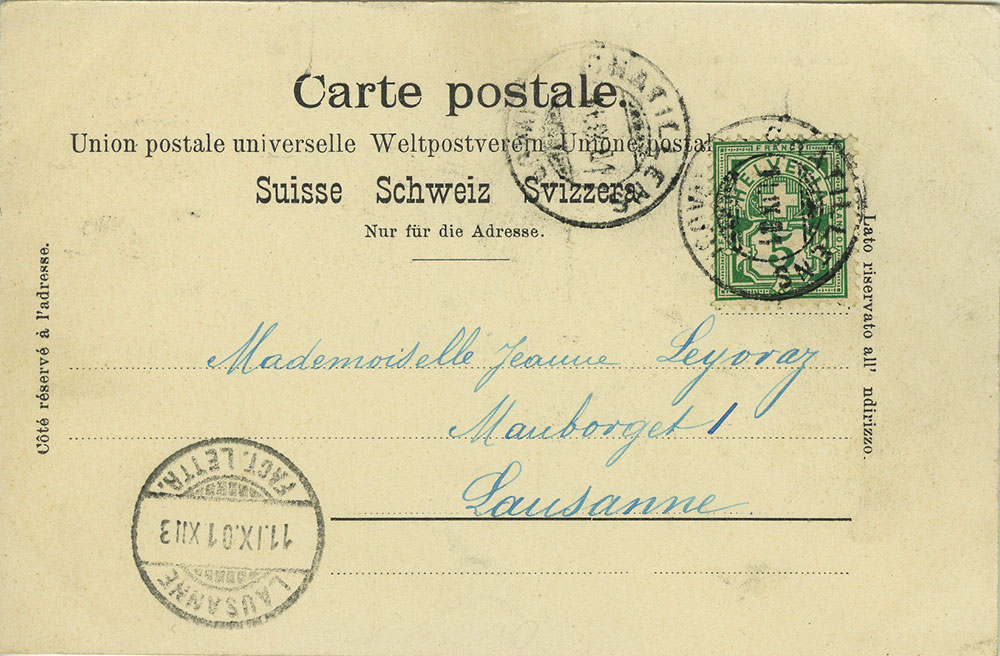 Carte postale.
Union postale universelle Weltpostverein Unione postal
Suisse Schweiz Svizzera
Nur für die Adresse.
Côté réservé à l'adresse.
Lato riservato all' ndirizzo.
CHATILLENS
CHATILLENS
FRANCO
HELVETIA
5
Mademoiselle Jeanne Leyvraz
Mauborget 1
Lausanne
FACT. LETTR.
11.IX.01 XII3
LAUSANNE